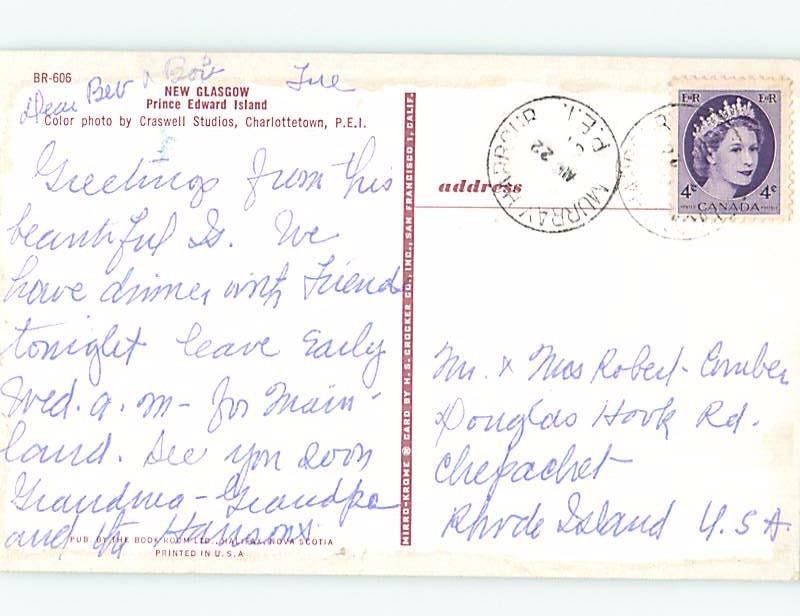 BR-606
NEW GLASGOW
Prince Edward Island
Color photo by Craswell Studios, Charlottetown, P.E.I.
Dear Bev & Bob Tue
Greetings from this
beautiful Is. We
have dinner with Friend
tonight leave Early
Wed. a.m - for Main-
land. See you soon
Grandma - Grandpa
and the Hansons
PUB. BY THE BOOK ROOM LTD., HALIFAX, NOVA SCOTIA
PRINTED IN U.S.A.
MIRRO-KROME ® CARD BY H. S. CROCKER CO., INC., SAN FRANCISCO 1, CALIF.
address
MURRAY HARBOUR
22
P.E.I.
E II R E II R
4c 4c
POSTES CANADA POSTAGE
Mr. & Mrs Robert Comber
Douglas Hook Rd.
Chepachet
Rhode Island U.S.A.